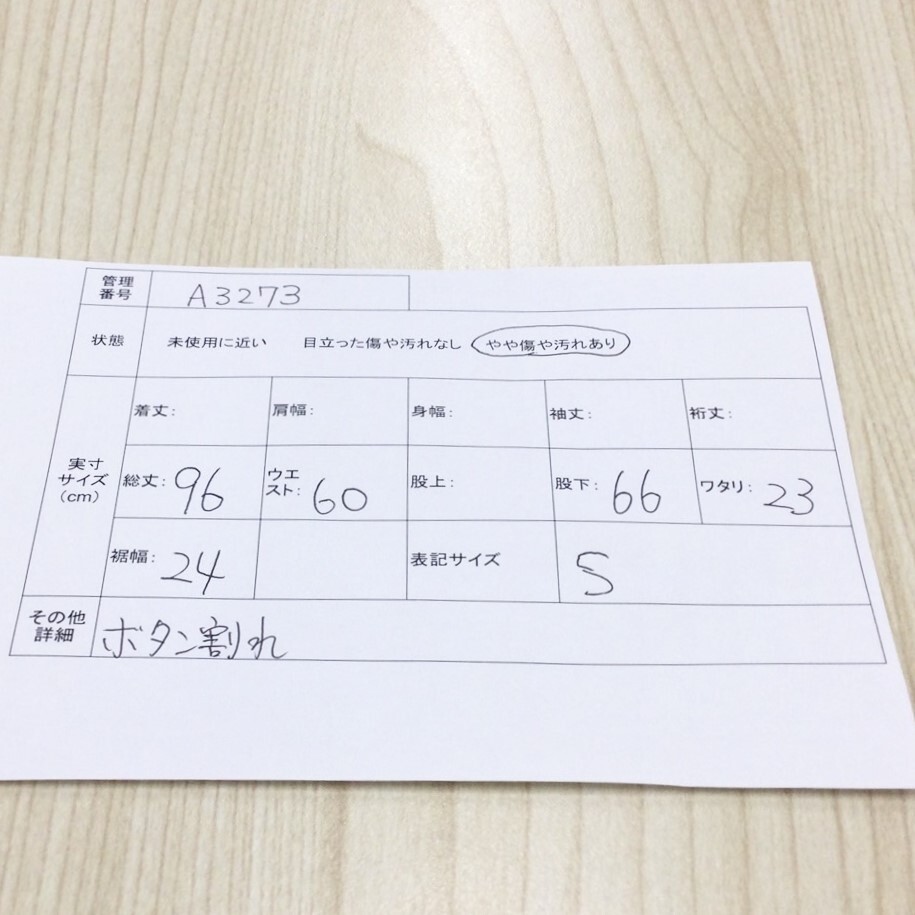 管理番号 A3273
状態 未使用に近い 目立った傷や汚れなし やや傷や汚れあり
実寸サイズ(cm)
着丈: 肩幅: 身幅: 袖丈: 裄丈:
総丈: 96 ウエスト: 60 股上: 股下: 66 ワタリ: 23
裾幅: 24 表記サイズ S
その他詳細 ボタン割れ